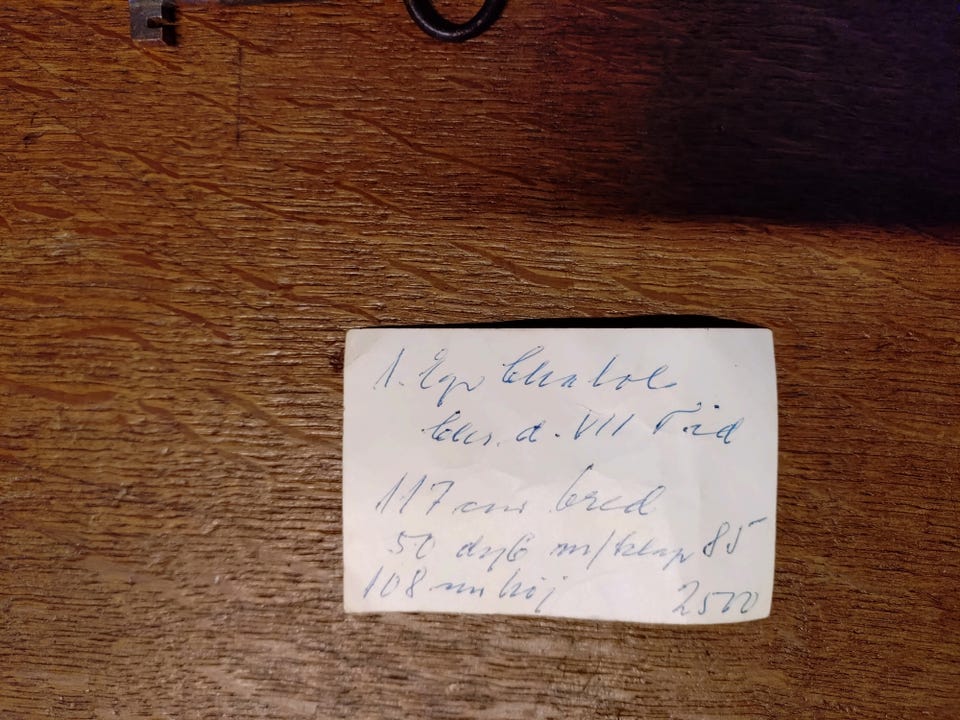 1. Ege Chatol
Chr. d. VII Tid
117 cm bred
50 dyb m/klap 85
108 cm høj 2500